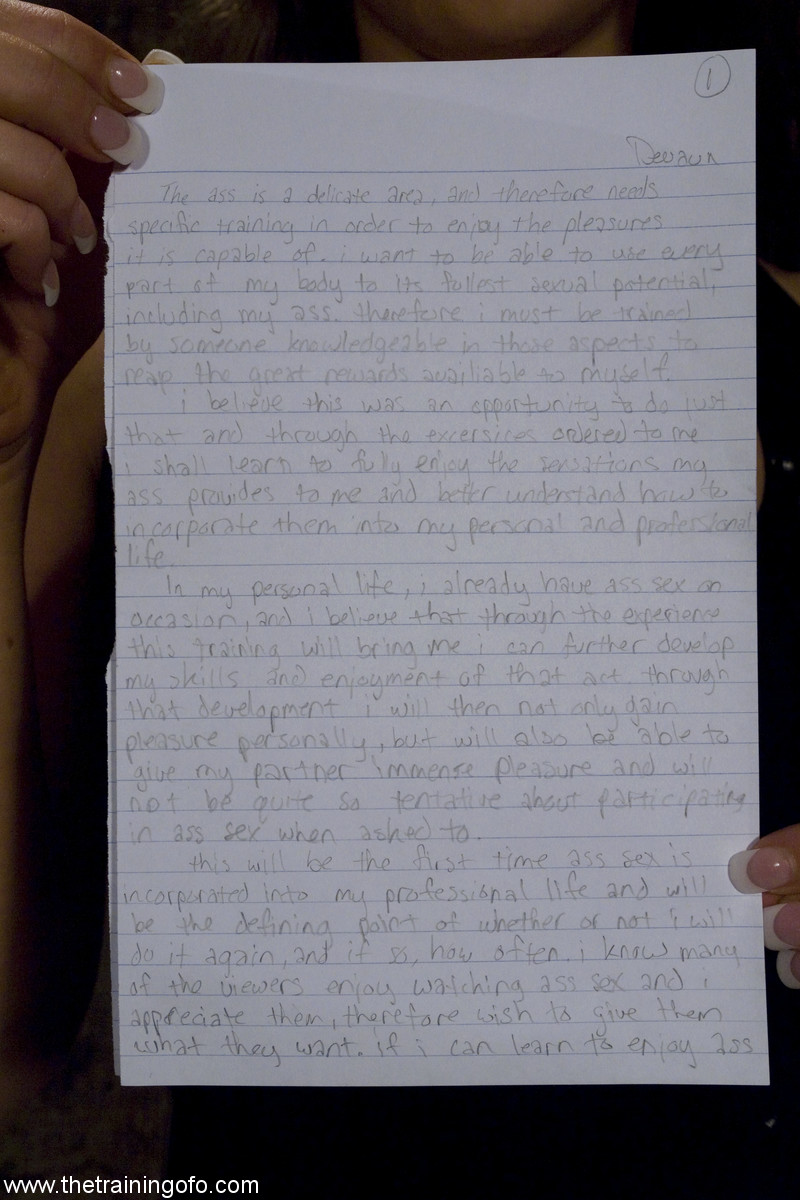 1
Devaun
The ass is a delicate area, and therefore needs
specific training in order to enjoy the pleasures
it is capable of. i want to be able to use every
part of my body to its fullest sexual potential,
including my ass. therefore i must be trained
by someone knowledgeable in those aspects to
reap the great rewards availiable to myself.
i believe this was an opportunity to do just
that and through the excersices ordered to me
i shall learn to fully enjoy the sensations my
ass provides to me and better understand how to
incorporate them into my personal and professional
life.
In my personal life, i already have ass sex on
occasion, and i believe that through the experience
this training will bring me i can further develop
my skills and enjoyment of that act. through
that development i will then not only gain
pleasure personally, but will also be able to
give my partner immense pleasure and will
not be quite so tentative about participating
in ass sex when asked to.
this will be the first time ass sex is
incorporated into my professional life and will
be the defining point of whether or not i will
do it again, and if so, how often. i know many
of the viewers enjoy watching ass sex and i
appreciate them, therefore wish to give them
what they want. if i can learn to enjoy ass
www.thetrainingofo.com